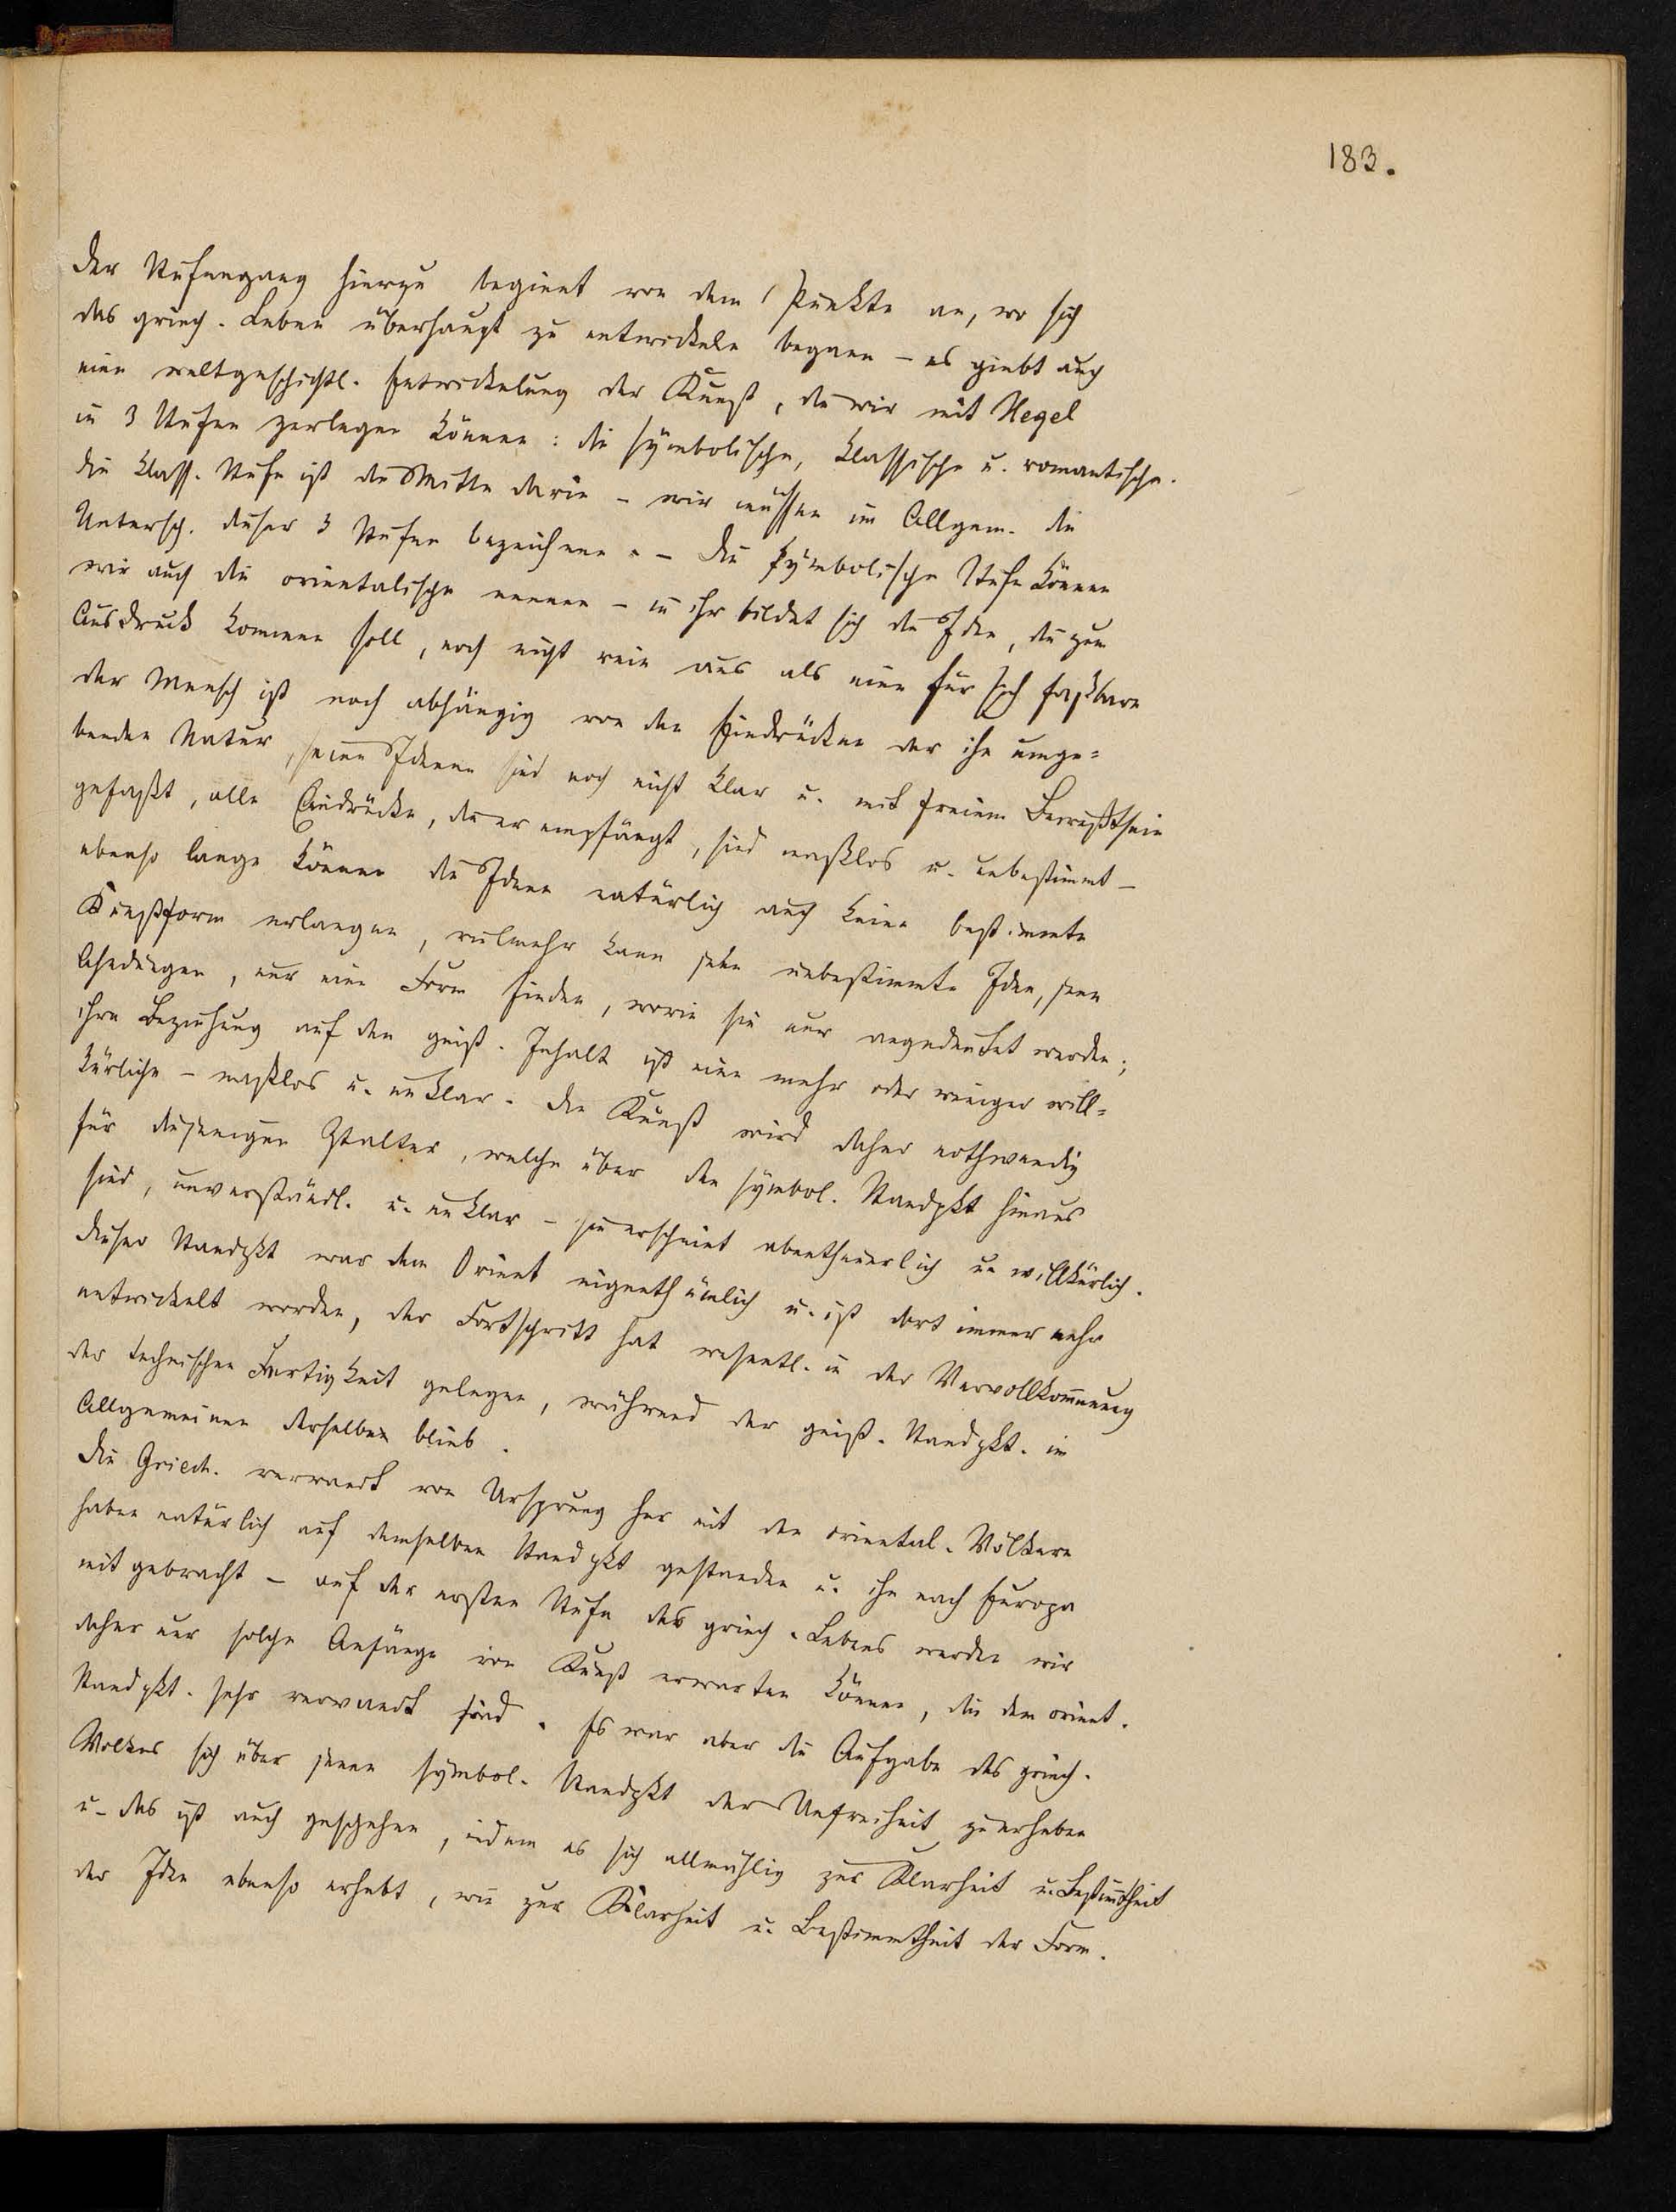 183.
Der Stufengang hierzu beginnt von dem Punkte an, wo sich
das griech. Leben überhaupt zu entwickeln begann – es giebt auch
eine weltgeschichtl. Entwickelung der Kunst, die wir mit Hegel
in 3 Stufen zerlegen können: die symbolische, klassische u. romantische.
die klass. Stufe ist die Mitte darin – wir müssen im Allgem. die
Untersch. dieser 3 Stufen bezeichnen. – Die symbolische Stufe können
wir auch die orientalische nennen – in ihr bildet sich die Idee, die zum
Ausdruck kommen soll, noch nicht rein aus als eine für sich faßbare
der Mensch ist noch abhängig von den Eindrücken der ihn umge=
benden Natur, seine Ideen sind noch nicht klar u. mit freiem Bewußtsein
gefaßt, alle Eindrücke, die er empfängt, sind maßlos u. unbestimmt –
ebenso lange können die Ideen natürlich auch keine bestimmte
Kunstform erlangen, vielmehr kann jede unbestimmte Idee, jene
Ahndungen, nur eine Form finden, worin sie nur angedeutet werden;
ihre Beziehung auf den geist. Inhalt ist eine mehr oder weniger will=
kürliche – maßlos u. unklar. Die Kunst wird daher nothwendig
für diejenigen Ztalter, welche über den symbol. Standpkt hinaus
sind, unverständl. u. unklar – sie erscheint abentheuerlich u. willkürlich.
dieser Standpkt war dem Orient eigenthümlich u. ist dort immer mehr
entwickelt worden, der Fortschritt hat wesentl. in der Vervollkomnung
der technischen Fertigkeit gelegen, während der geist. Standpkt. im
Allgemeinen derselbe blieb.
Die Griech. verwandt von Ursprung her mit den oriental. Völkern
haben natürlich auf demselben Standpkt gestanden u. ihn nach Europa
mit gebracht – auf der ersten Stufe des griech. Lebens werden wir
daher nur solche Anfänge von Kunst erwarten können, die dem orient.
Standpkt. sehr verwandt sind. Es war aber die Aufgabe des griech.
Volkes sich über jenen symbol. Standpkt der Unfreiheit zu erheben
u. das ist auch geschehen, indem es sich allmählig zur Klarheit u. Bestimtheit
der Idee ebenso erhebt, wie zur Klarheit u. Bestimmtheit der Form.